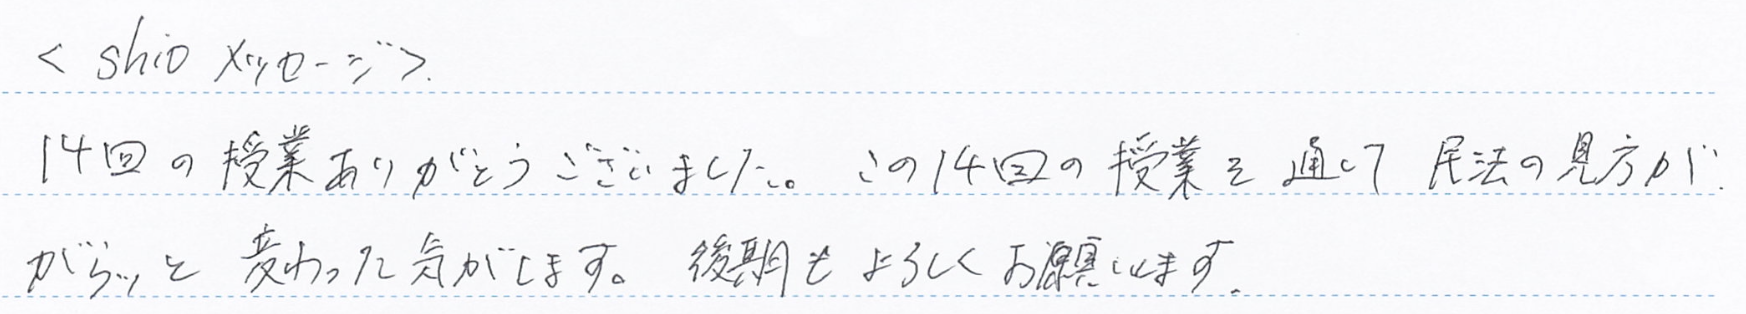 < shio メッセージ>.
14回の授業ありがとうございました。この14回の授業を通して民法の見方が
がらッと変わった気がします。後期もよろしくお願いします.